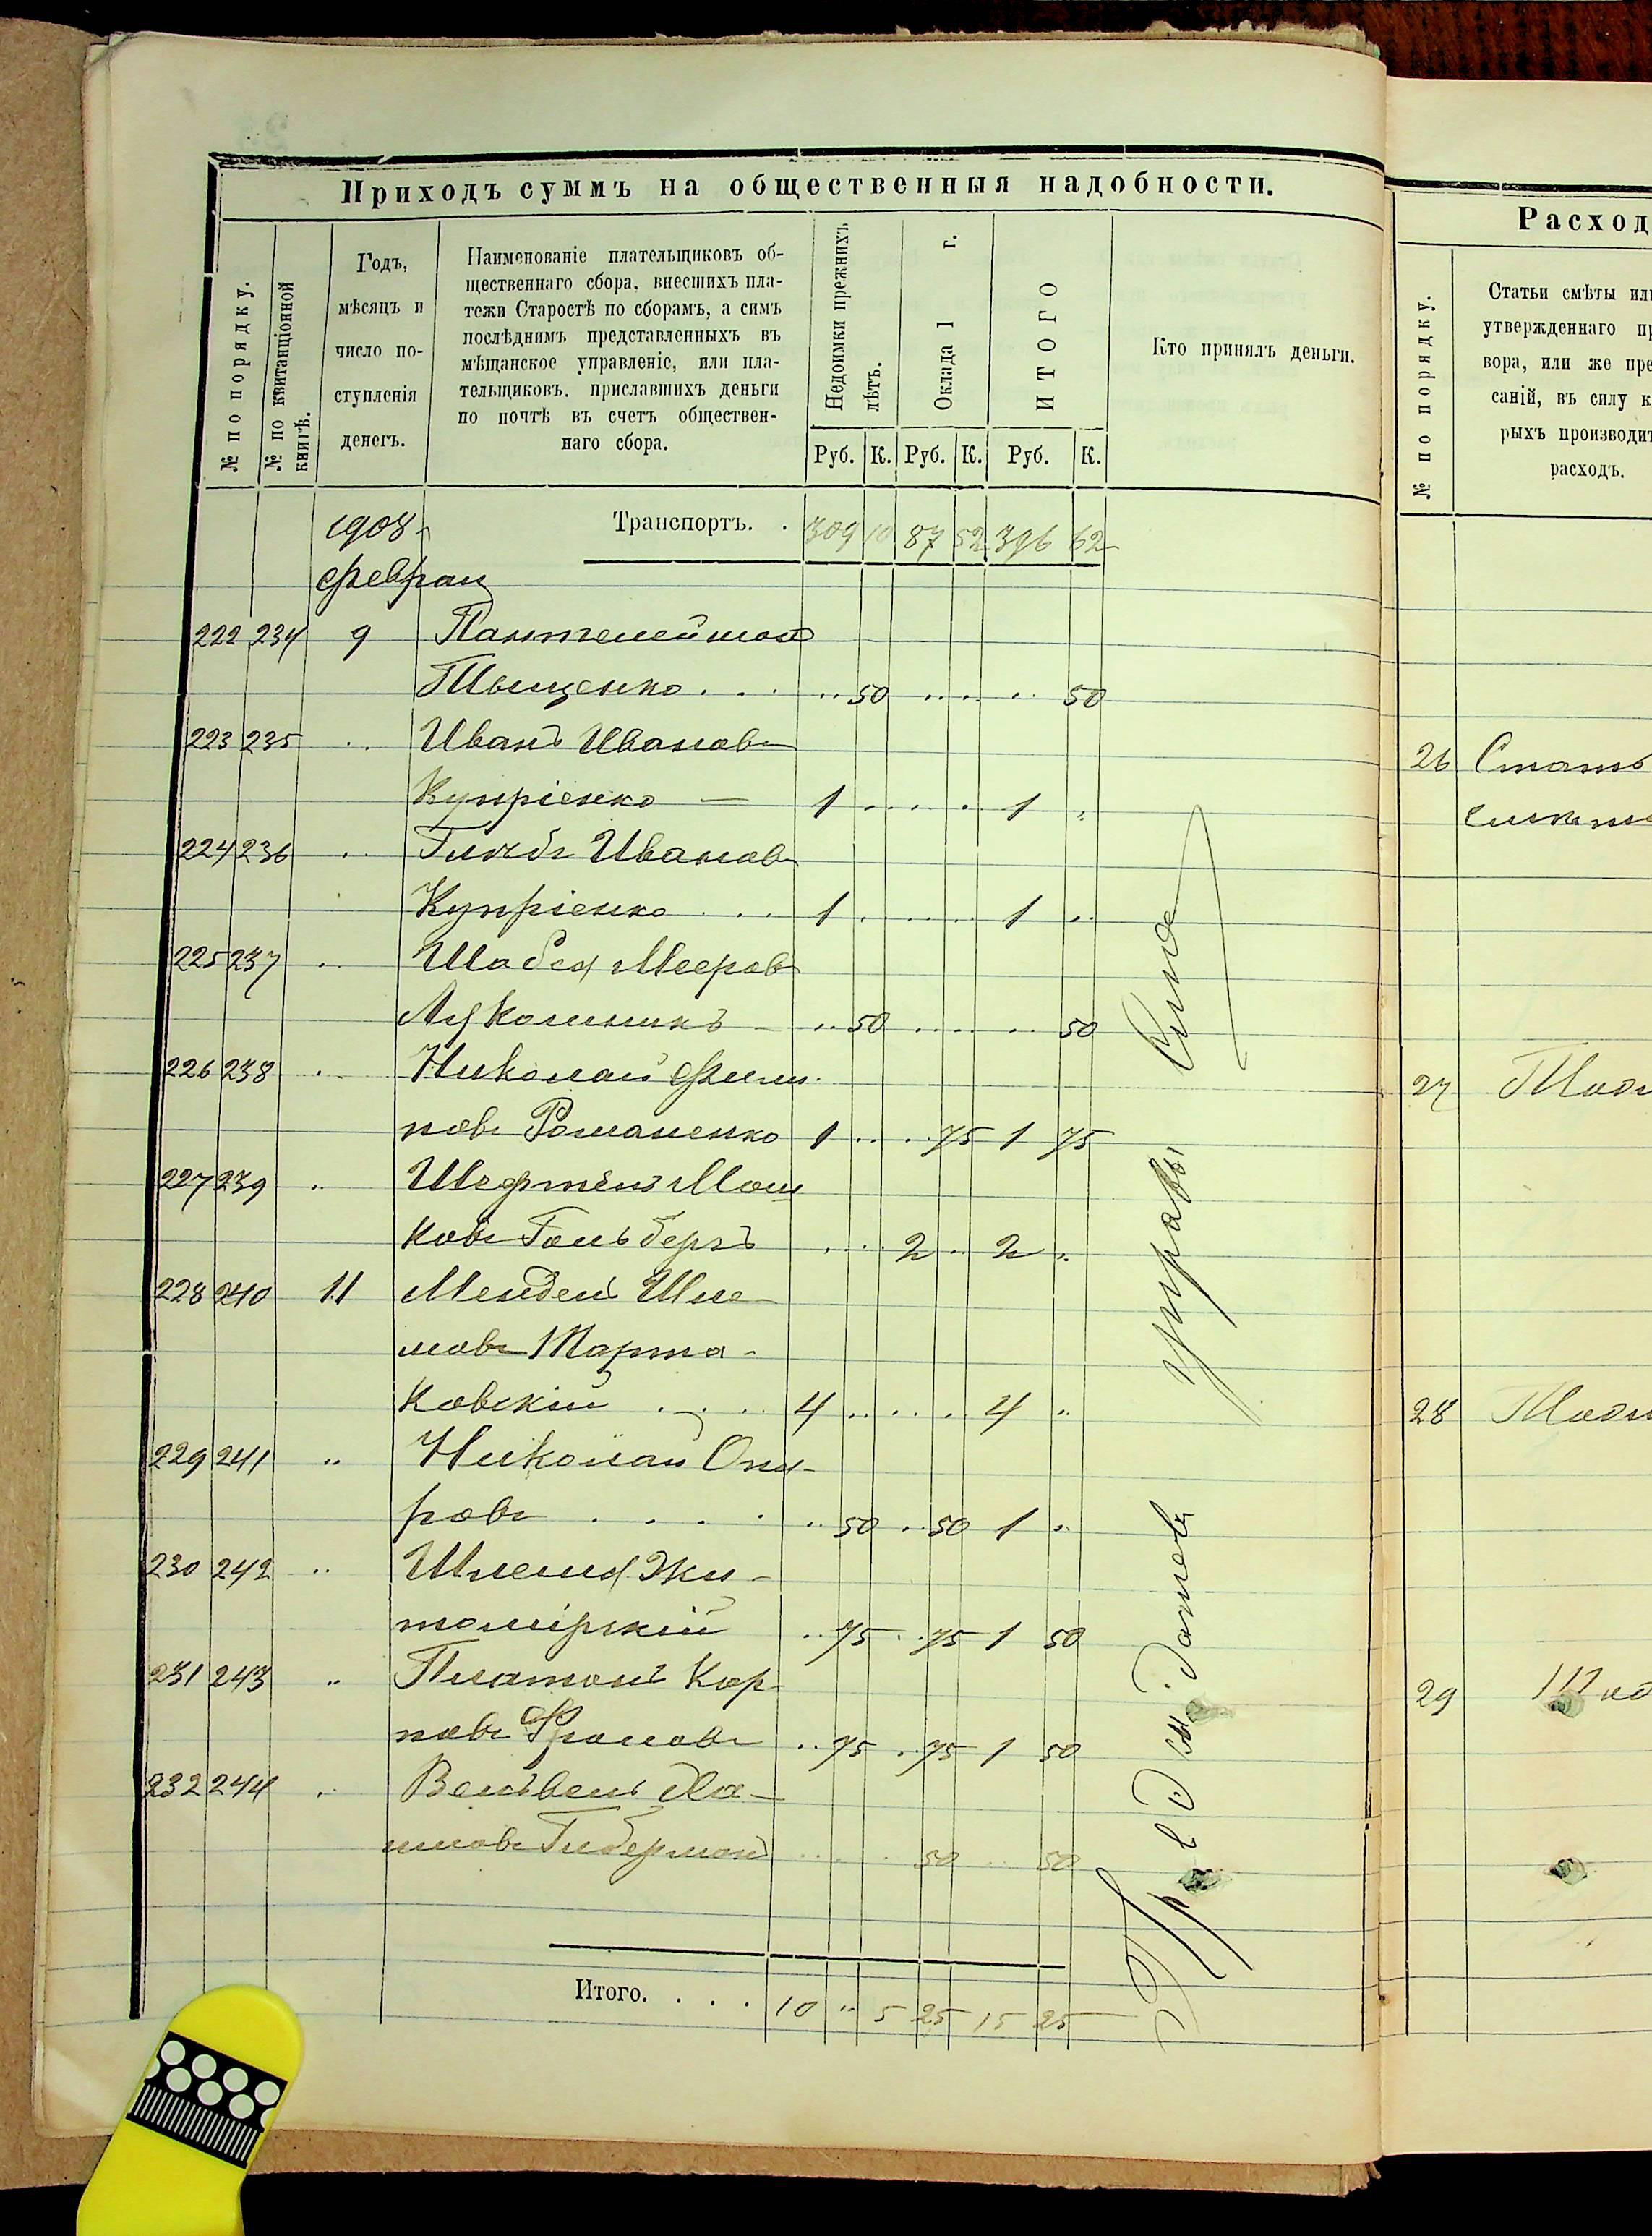 Приходъ суммъ на общественныя надобности.
№ по порядку.
№ по квитанціонной книгѣ.
Годъ,
мѣсяцъ и
число по-
ступленія
денегъ.
Наименованіе плательщиковъ об-
щественнаго сбора, внесшихъ пла-
тежи Старостѣ по сборамъ, а симъ
послѣднимъ представленныхъ въ
мѣщанское управленіе, или пла-
тельщиковъ, приславшихъ деньги
по почтѣ въ счетъ обществен-
наго сбора.
Недоимки прежнихъ лѣтъ.
Оклада 1 г.
ИТОГО
Кто принялъ деньги.
Руб. К. Руб. К. Руб. К.
1908 Транспортъ. . 309 10 87 52 396 62
Феврал
222 234 9 Пантелеймон
Тыщенко . . . 50 50
223 235 Иванъ Ивановъ
Купріенко — 1 1
224 236 Глѣбъ Ивановъ
Купріенко . . . 1 1
225 237 Шабся Мееровъ
50 50
226 238 Николай Филип
повъ Романенко 1 75 1 75
227 239 Мош
ковъ Гольбергъ 2 2
228 240 11 Мендель Шле
мовъ Тарта-
ковскій . . . 4 4
229 241 Николай
ровъ . . . . 50 50 1
230 242 Шлема Жи-
томірскій 75 75 1 50
231 243 Платонъ Кар
повъ 75 75 1 50
232 244 Вельвель Ха-
имовъ Либерман 50 50
Итого. . . . 10 5 25 15 25
управы
Расход
№ по порядку.
Статьи смѣты ил
утвержденнаго пр
вора, или же пре
саній, въ силу к
рыхъ производит
расходъ.
26 Стать
27
28
29